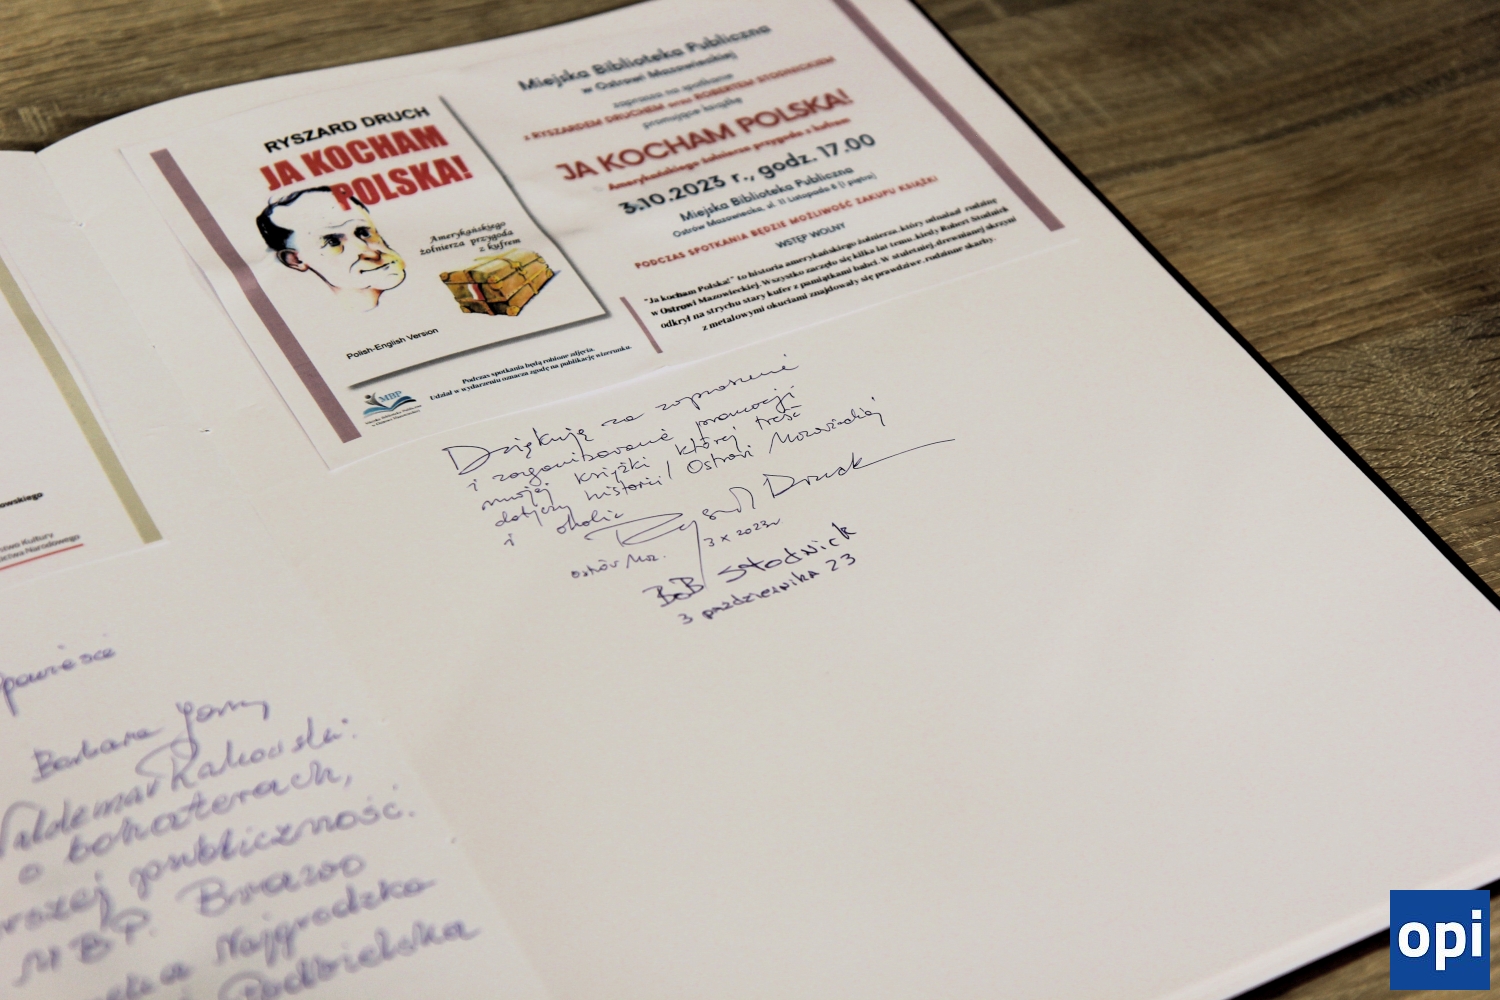 RYSZARD DRUCH
JA KOCHAM
POLSKA!
Amerykańskiego
żołnierza przygoda
z kufrem
Polish-English Version
MBP
Podczas spotkania będą robione zdjęcia.
Udział w wydarzeniu oznacza zgodę na publikację wizerunku.
Miejska Biblioteka Publiczna
w Ostrowi Mazowieckiej
zaprasza na spotkanie
z RYSZARDEM DRUCHEM oraz ROBERTEM STODNICKIEM
promujące książkę
JA KOCHAM POLSKA!
Amerykańskiego żołnierza przygoda z kufrem
3.10.2023 r., godz. 17.00
Miejska Biblioteka Publiczna
Ostrów Mazowiecka, ul. 11 Listopada 6 (I piętro)
PODCZAS SPOTKANIA BĘDZIE MOŻLIWOŚĆ ZAKUPU KSIĄŻKI
WSTĘP WOLNY
"Ja kocham Polska!" to historia amerykańskiego żołnierza, który odnalazł rodzinę
w Ostrowi Mazowieckiej. Wszystko zaczęło się kilka lat temu, kiedy Robert Stodnick
odkrył na strychu stary kufer z pamiątkami babci. W stuletniej, drewnianej skrzyni
z metalowymi okuciami znajdowały się prawdziwe, rodzinne skarby.
Dziękuję za zaproszenie
i zorganizowanie promocji
mojej książki której treść
dotyczy historii Ostrowi Mazowieckiej
i okolic
Ryszard Druch
Ostrów Maz. 3 X 2023r
BoB Stodnick
3 października 23
owskiego
stwo Kultury
ctwa Narodowego
Barbara
Waldemar Rakowski
o bohaterach,
publiczność.
MBP. Brawo
Najgrodzka
Podbielska
opi